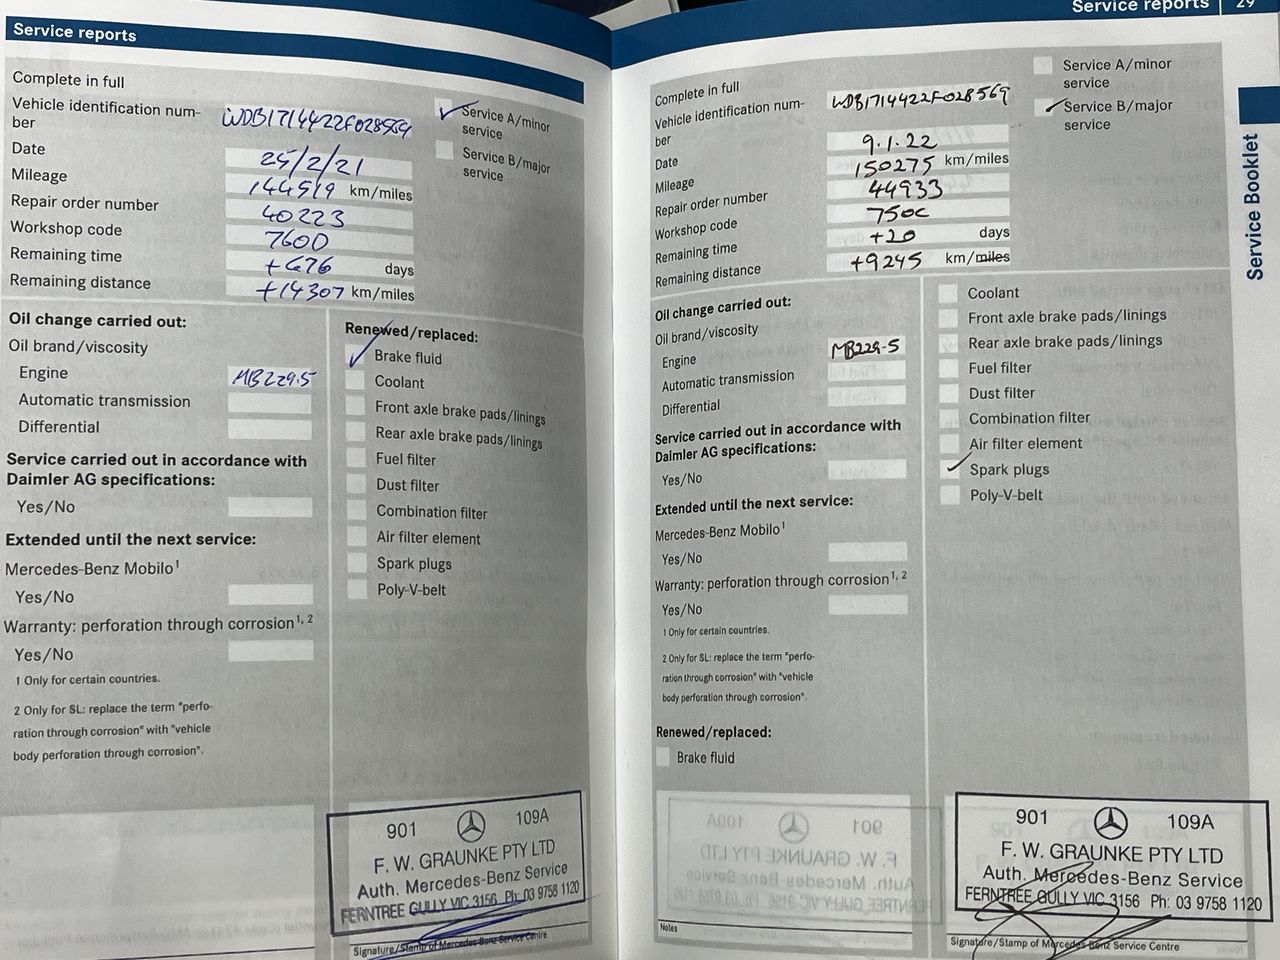 Service reports
Complete in full
Vehicle identification num-
ber
WDB1714422F028569
Date
25/2/21
Mileage
144519 km/miles
Repair order number
40223
Workshop code
7600
Remaining time
+676 days
Remaining distance
+14307 km/miles
Service A/minor
service
Service B/major
service
Oil change carried out:
Oil brand/viscosity
Engine
MB229.5
Automatic transmission
Differential
Service carried out in accordance with
Daimler AG specifications:
Yes/No
Extended until the next service:
Mercedes-Benz Mobilo1
Yes/No
Warranty: perforation through corrosion1, 2
Yes/No
1 Only for certain countries.
2 Only for SL: replace the term "perfo-
ration through corrosion" with "vehicle
body perforation through corrosion".
Renewed/replaced:
Brake fluid
Coolant
Front axle brake pads/linings
Rear axle brake pads/linings
Fuel filter
Dust filter
Combination filter
Air filter element
Spark plugs
Poly-V-belt
901 109A
F. W. GRAUNKE PTY LTD
Auth. Mercedes-Benz Service
FERNTREE GULLY VIC 3156 Ph: 03 9758 1120
Signature/Stamp of Mercedes-Benz Service Centre
Service reports 29
Complete in full
Vehicle identification num-
ber
WDB1714422F028569
Date
9.1.22
Mileage
150275 km/miles
Repair order number
44933
Workshop code
750C
Remaining time
+20 days
Remaining distance
+9245 km/miles
Service A/minor
service
Service B/major
service
Oil change carried out:
Oil brand/viscosity
Engine
MB229.5
Automatic transmission
Differential
Service carried out in accordance with
Daimler AG specifications:
Yes/No
Extended until the next service:
Mercedes-Benz Mobilo1
Yes/No
Warranty: perforation through corrosion1, 2
Yes/No
1 Only for certain countries.
2 Only for SL: replace the term "perfo-
ration through corrosion" with "vehicle
body perforation through corrosion".
Renewed/replaced:
Brake fluid
Coolant
Front axle brake pads/linings
Rear axle brake pads/linings
Fuel filter
Dust filter
Combination filter
Air filter element
Spark plugs
Poly-V-belt
Notes
901 109A
F. W. GRAUNKE PTY LTD
Auth. Mercedes-Benz Service
FERNTREE GULLY VIC 3156 Ph: 03 9758 1120
Signature/Stamp of Mercedes-Benz Service Centre
Service Booklet